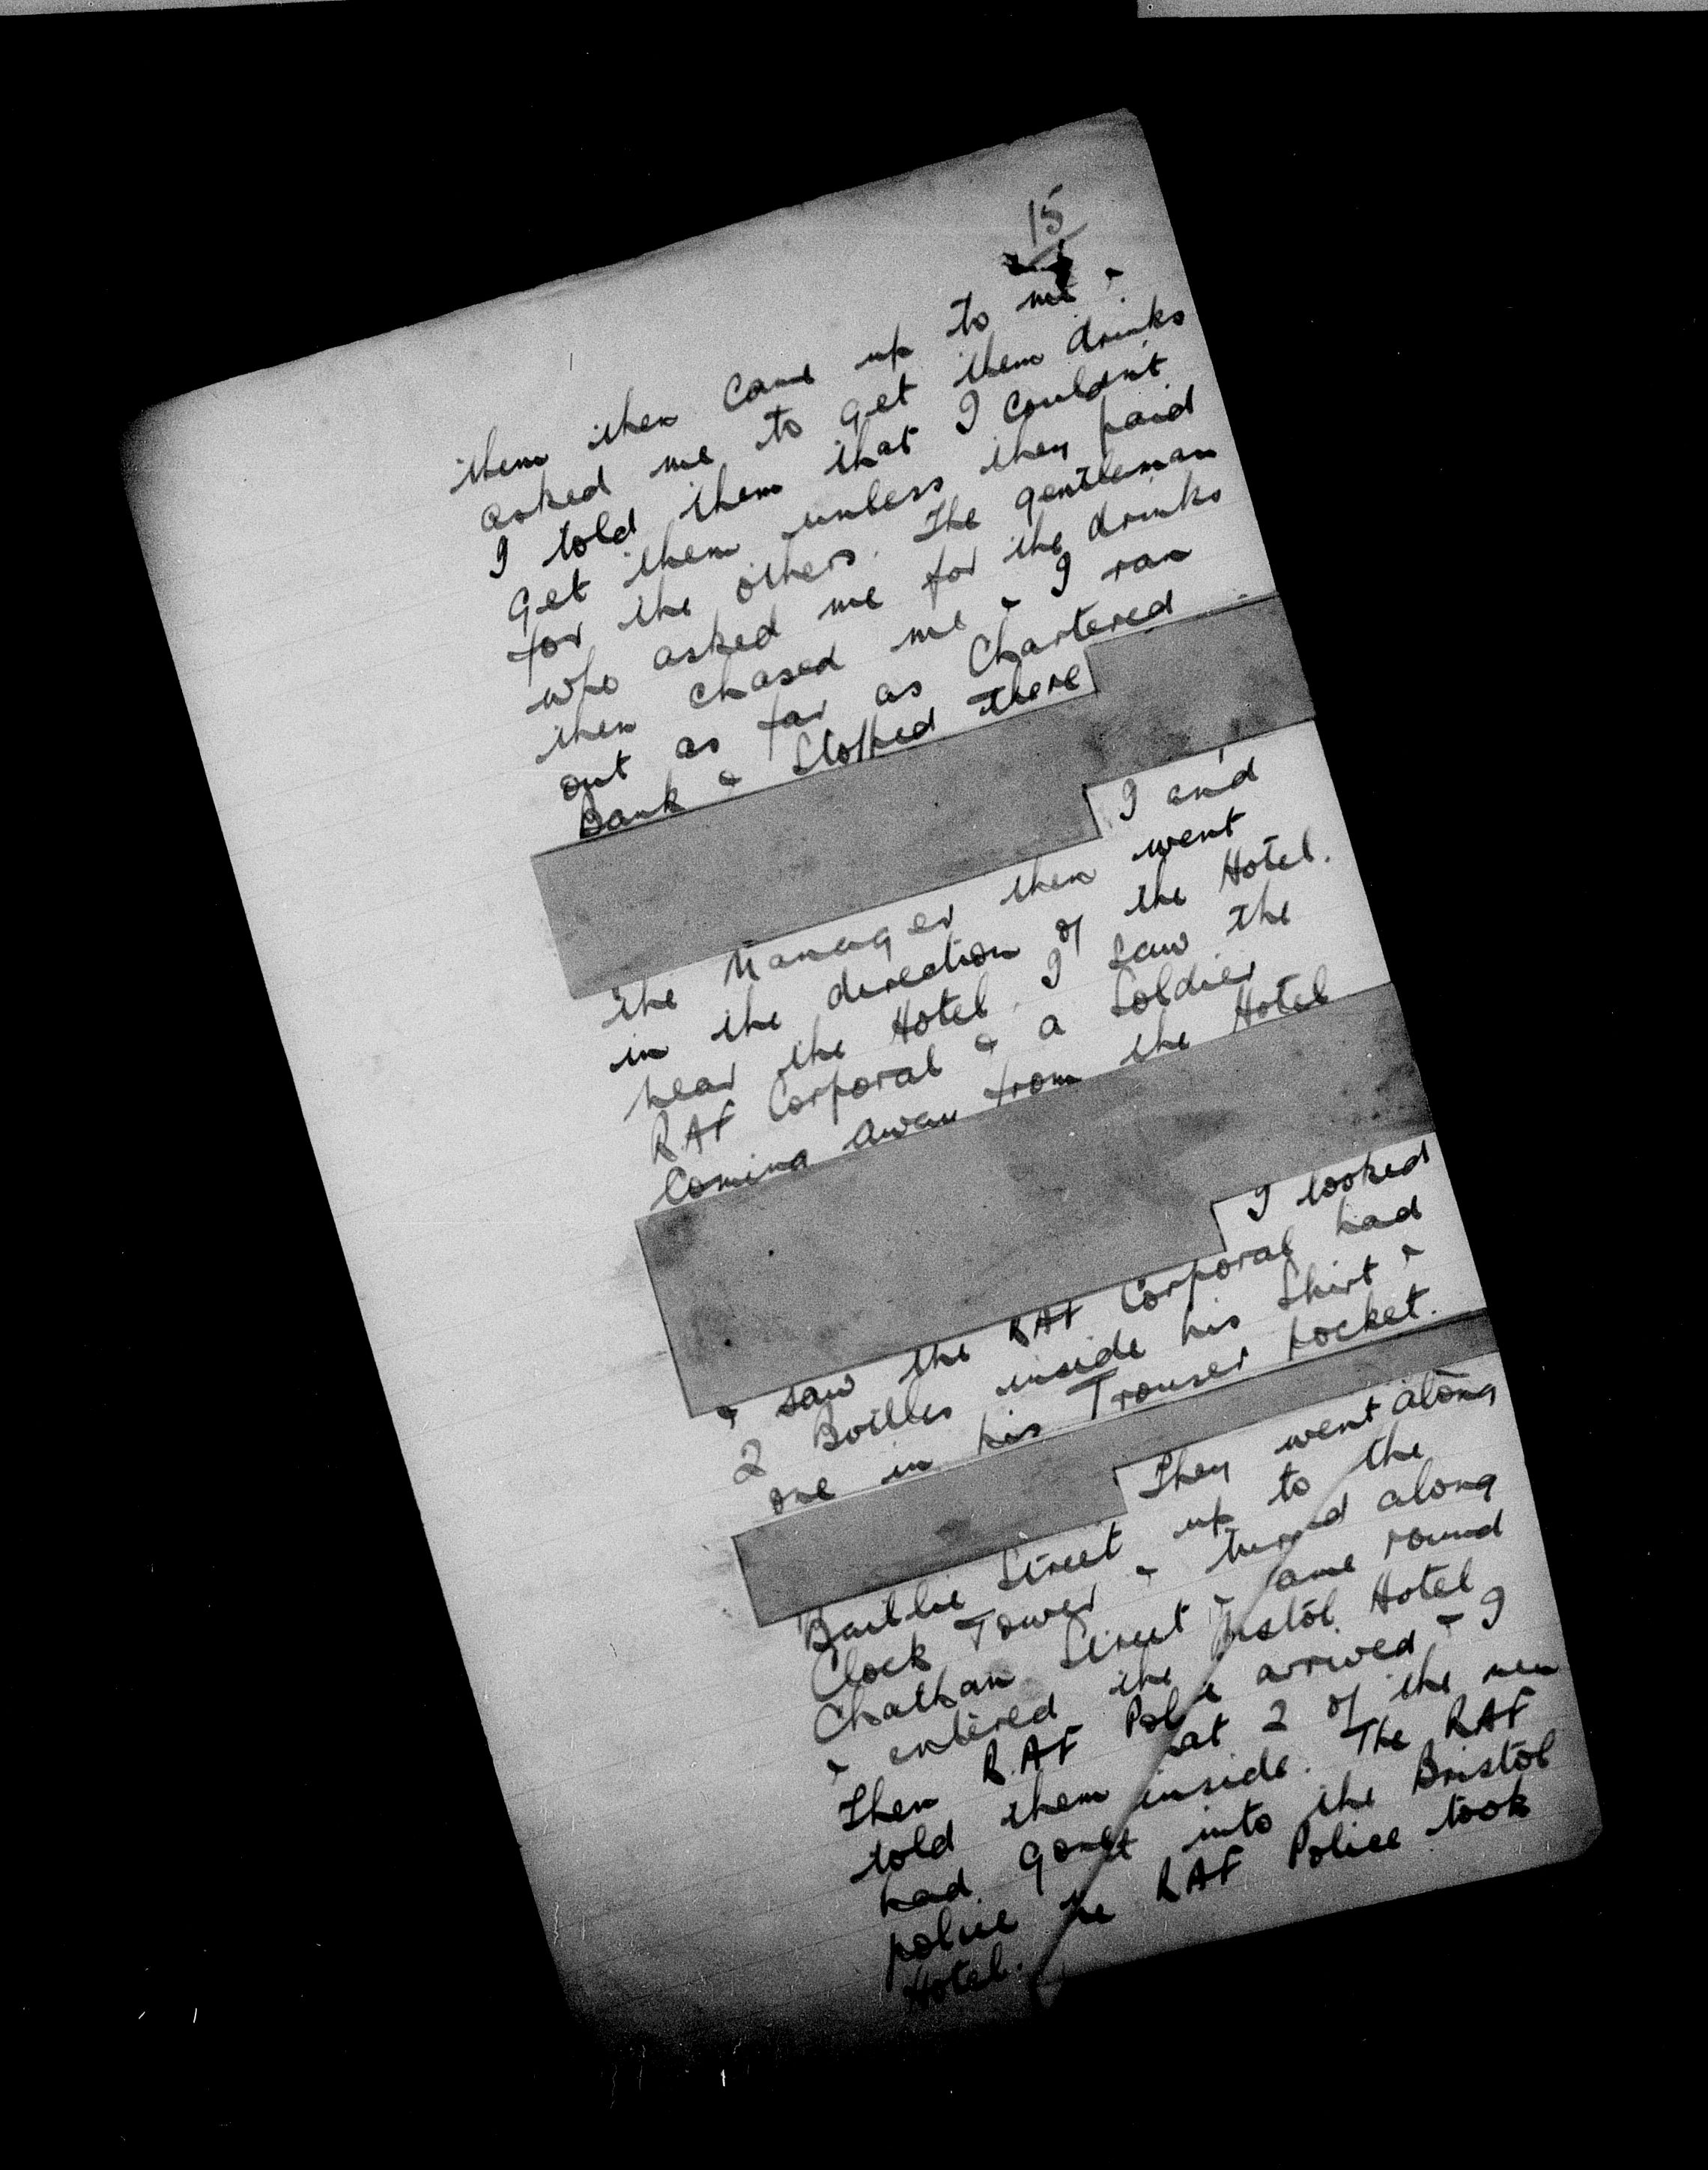 15
them then came up to me &
asked me to get them drinks
I told them that I couldn't
get them unless they paid
for the others. The gentleman
who asked me for the drinks
then chased me & I ran
out as far as Chartered
Bank & Stopped there
I and
the Manager then went
in the direction of the Hotel.
near the Hotel I saw the
RAF Corporal & a Soldier
Coming away from the Hotel
I looked
& saw the RAF Corporal had
2 Bottles inside his Shirt &
one in his Trouser pocket.
They went along
Baillie Street up to the
Clock Tower & turned along
Chatham Street & came round
& entered the Bristol Hotel
Then RAF Police arrived & I
told them that 2 of the men
had gone inside. The RAF
police into the Bristol
Hotel. The RAF Police took